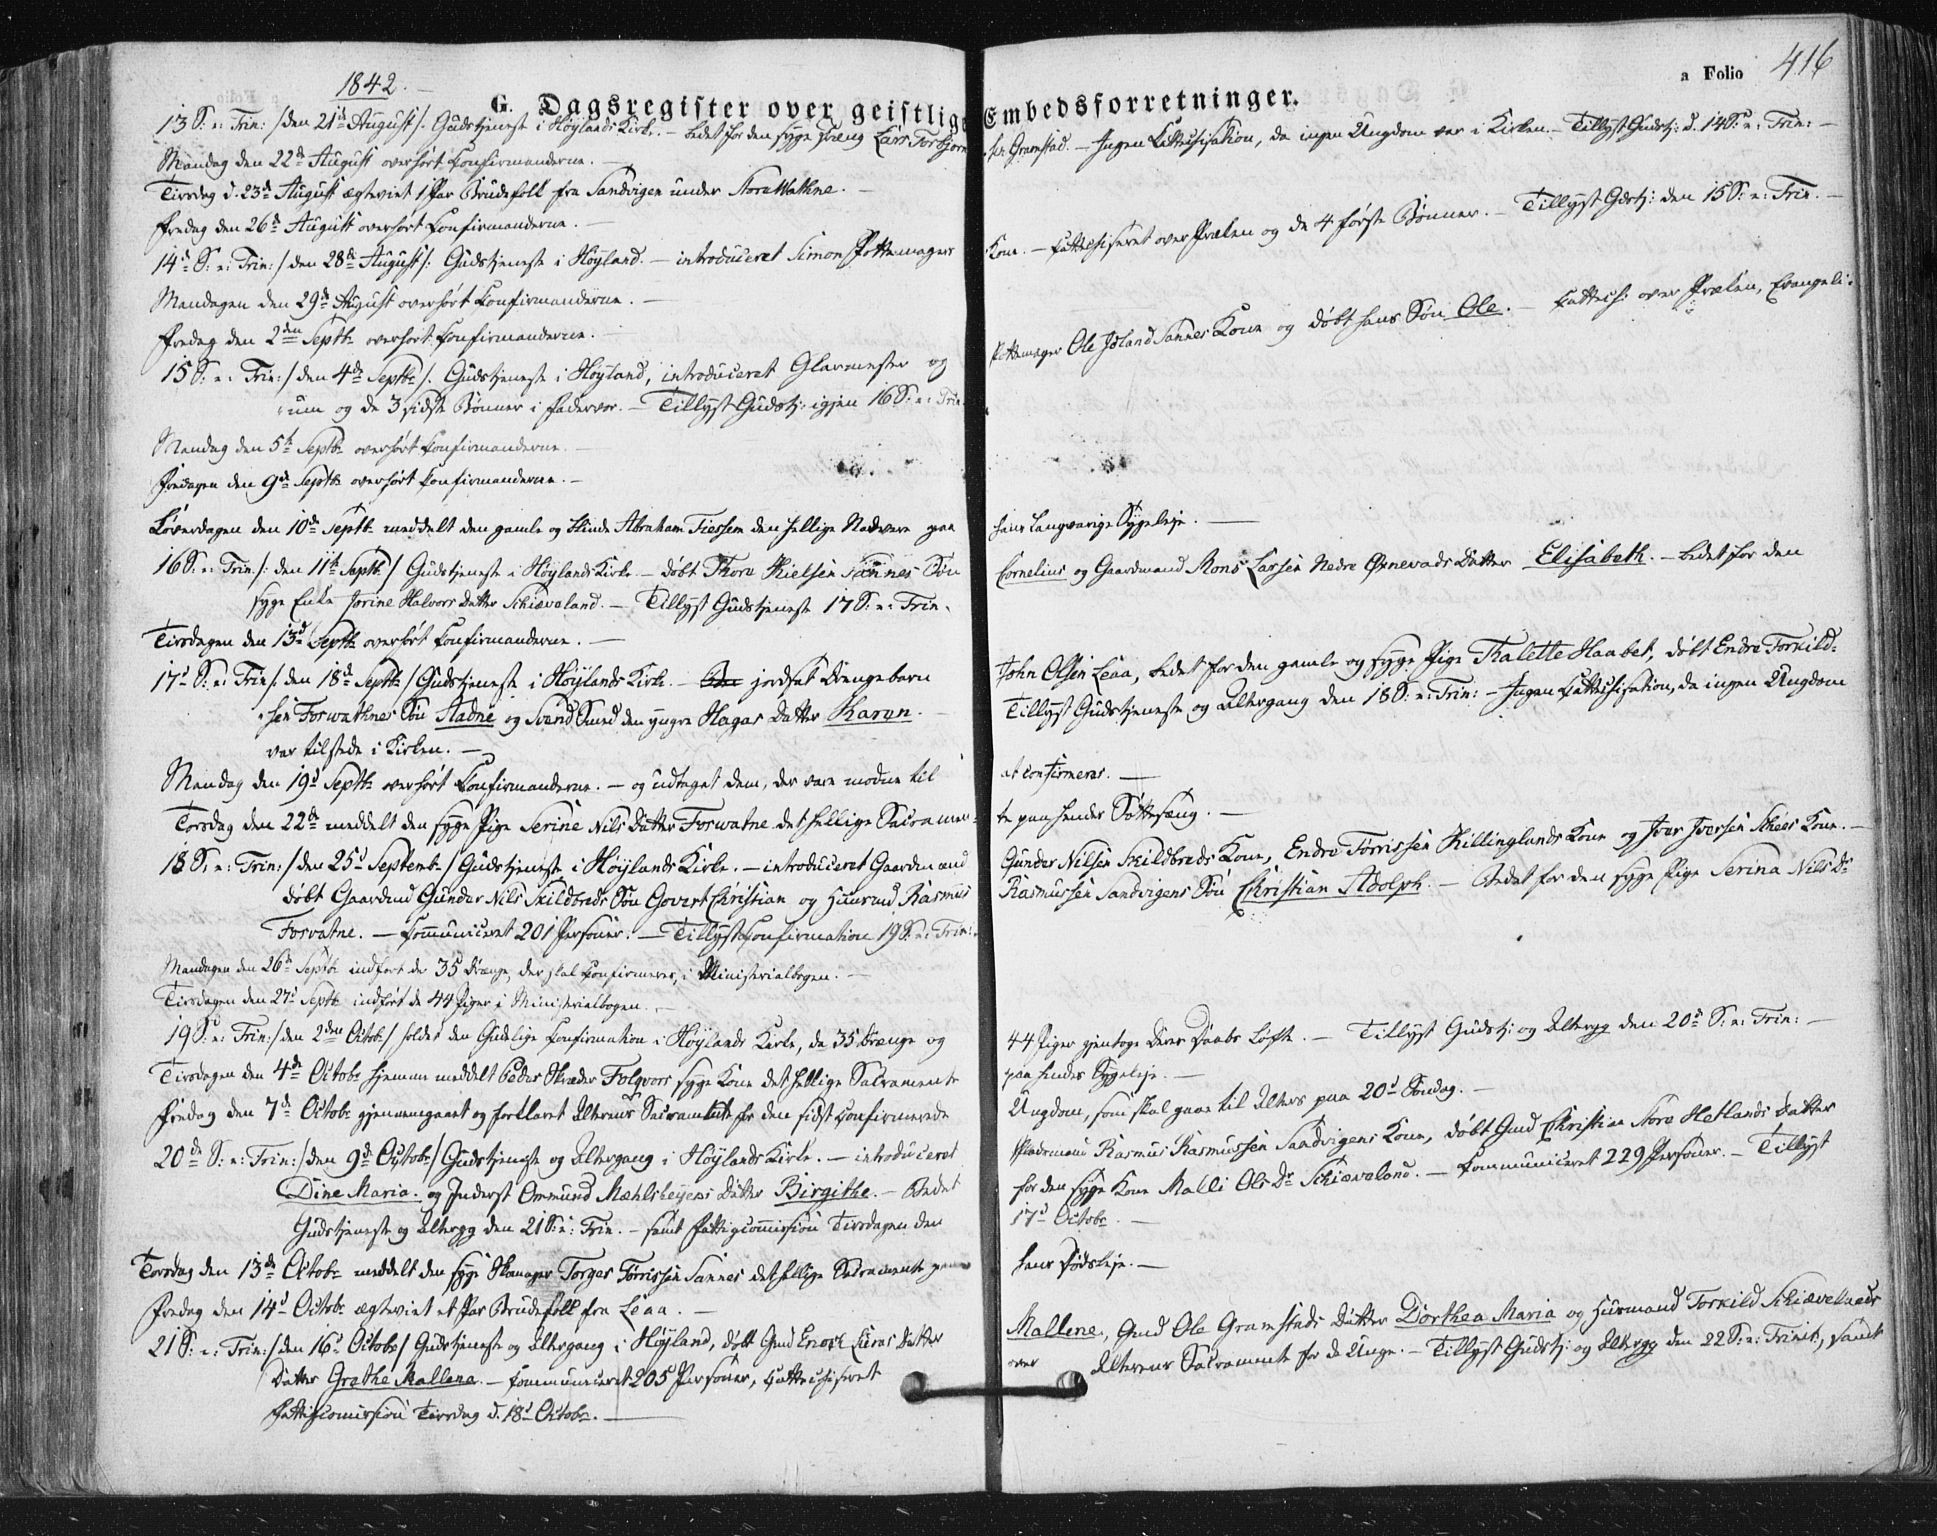 1842.
a Folio 416
G. Dagsregister over geistlige Embedsforretninger.
13 S: e: Trin: /den 21de August/: Gudstjeneste i Høylands Kirke. – bedet for den syge Dreng Lars Torbjørn
sen Gramstad. – Ingen Cattechisation, da ingen Ungdom var i Kirken. – Tillyst Gudstj: d. 14 S: e: Trin: –
Mandag den 22de August overhørt Confirmanderne. –
Tirsdag d. 23de August ægteviet 1 Par Brudefolk fra Sandvigen under Store Wathne. –
Fredag den 26de August overhørt Confirmanderne. –
14de S: e: Trin: /den 28de August/: Gudstjeneste i Høyland. – introduceret Simon Pottemagers
Kone. – Cattechiseret over Præken og de 4 første Bønner. – Tillyst Gdstj: den 15 S: e: Trin. –
Mandagen den 29de August overhørt Confirmanderne. –
Fredag den 2den Septbr overhørt Confirmanderne. –
15 S: e: Trin: /den 4de Septbr/. Gudstjeneste i Høyland, introduceret Glarmester og
Pottemager Ole Joland Sannes Kone og døbt hans Søn Ole. – Cattech: over Præken, Evangeli:
:um og de 3 sidste Bønner i Fadervor. – Tillyst Gudstj: igjen 16 S: e: Trin:
Mandag den 5te Septbr overhørt Confirmanderne. –
Fredagen den 9de Septbr overhørt Confirmanderne. –
Løverdagen den 10de Septbr meddelt den gamle og blinde Abraham Tiessem den hellige Nadvere paa
hans langvarige Sygeleje. –
16 S: e: Trin /: den 11te Septbr/ Gudstjeneste i Høylands Kirke – døbt Thore Kielsen Sannes Søn
Cornelius og Gaardmand Mons Larsen Nedre Ørnevads Datter Elisabeth. – bedet for den
syge Enke Jorine Halvors Datter Schiævoland. – Tillyst Gudstjeneste 17 S: e: Trin.
Tirsdagen den 13de Septbr overhørt Confirmanderne. –
17de S: e: Trin /: den 18de Septbr / Gudstjeneste i Høylands Kirke. – jordsat Drengebarn
John Olsen Leaa, bedet for den gamle og syge Pige Thalette Haabet, døbt Endre Torkild:
:sen Foswathnes Søn Aadne og Svend Smed den yngre Hagas Datter Karen. –
Tillyst Gudstjeneste og Altergang den 18 S: e: Trin: – Ingen Cattechisation, da ingen Ungdom
var tilstede i Kirken. –
Mandag den 19de Septbr overhørt Confirmanderne. – og udtaget dem, der vare modne til
at confirmeres. –
Torsdag den 22de meddelt den syge Pige Serine Nils Datter Foswatne det hellige Sacramen:
te paa hendes Sottesæng. –
18 S: e: Trin: /den 25de Septemb./ Gudstjeneste i Høylands Kirke. – introduceret Gaardmand
Gunder Nilsen Skildbreds Kone, Endre Tørrissen Killinglands Kone og Iver Iversen Skees Kone. –
døbt Gaardmd Gunder Nils Skildbreds Søn Govert Christian og Huusmd Rasmus
Rasmussen Sandvigens Søn Christian Adolph. – Bedet for den syge Pige Serina Nils Dr
Fosvatne. – Communiceret 201 Personer: – Tillyst Confirmation 19 S: e: Trin:
Mandagen den 26de Septbr indført de 35 Drenge, der skal Confirmeres, i Ministerialbogen. –
Tirsdagen den 27de Septbr indført de 44 Piger i Ministerialbogen. –
19 S: e: Trin: /den 2den Octobr/ holdes den Gudelige Confirmation i Høylands Kirke, da 35 Drenge og
44 Piger gjentoge Deres Daabs Løfte. – Tillyst Gudstj: og Altergg den 20de S: e: Trin: –
Tirsdagen den 4de Octobr hjemme meddelt Peder Skræder Folqvors syge Kone det hellige Sacramente
paa hendes Sygeleje. –
Fredag den 7de Octobr gjennemgaaet og forklaret Alterens Sacramente for den sidst confirmerede
Ungdom, som skal gaae til Alters paa 20de Søndag. –
20de S: e: Trin: /den 9de Octobr/ Gudstjeneste og Altergang i Høylands Kirke. – introduceret
Rasmus Rasmussen Sandvigens Kone, døbt Gmd Christian Store Hetlands Datter
Dine Maria. og Inderst Ommund Mæhlsheyens Datter Birgithe. – Bedet
for den syge Kone Malli Ols Dr Schiævoland. – Communiceret 229 Personer. – Tillyst
Gudstjeneste og Altergg den 21 S: e: Trin. – samt Fattigcommission Tirsdagen den
17de Octobr. –
Torsdag den 13de Octobr meddelt den syge Skomager Torges Tørrissen Sannes det hellige Sacramente paa
hans Dødsleje. –
Fredag den 14de Octobr ægteviet et Par Brudefolk fra Leaa. –
21 S: e: Trin: /den 16de Octobr/ Gudstjeneste og Altergang i Høyland, døbt Gmd Enoch Luras Datter
Mallene, Gmd Ole Gramstads Datter Dorthea Maria og Huusmand Torkild Schiævelands
Datter Grethe Mallena. – Communiceret 205 Personer, Cattechiseret
over Alterens Sacramente for de Unge. – Tillyst Gudstj: og Altergg den 22 S: e: Trinit:, samt
Fattigcomission Tirsdag d. 18de Octobr. –